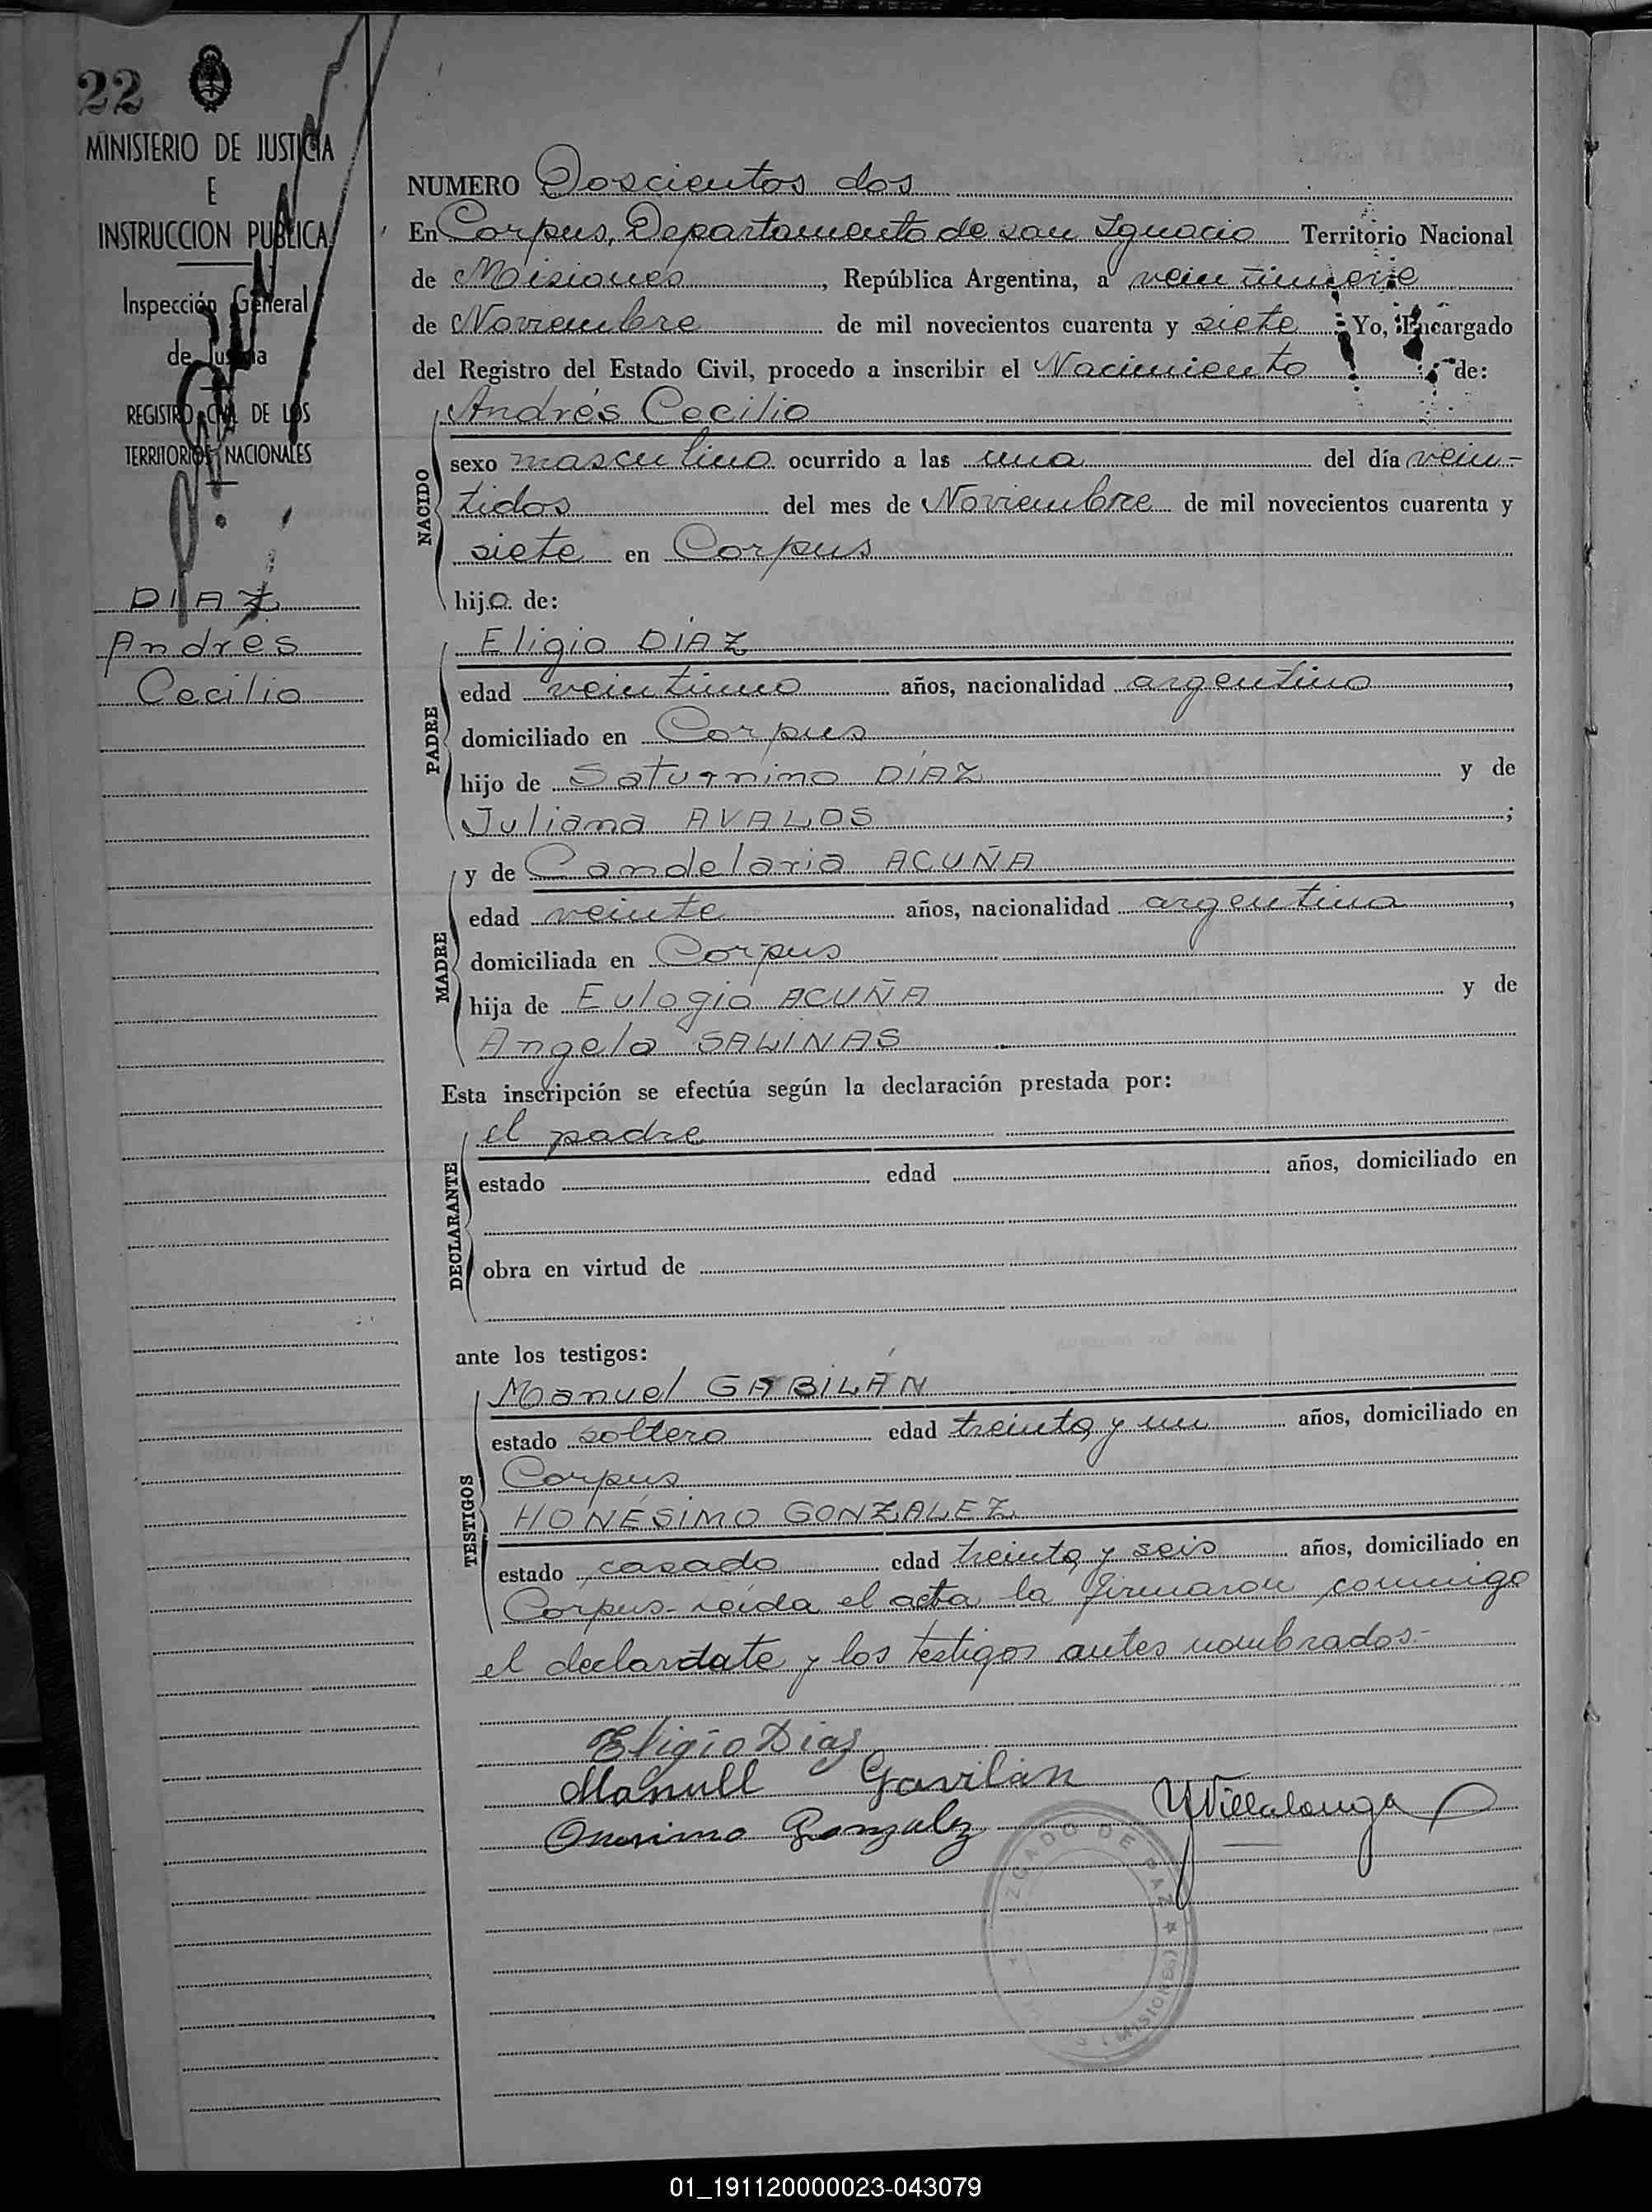 22
MINISTERIO DE JUSTICIA
E
INSTRUCCION PUBLICA
Inspección General
de Justicia
REGISTRO CIVIL DE LOS
TERRITORIOS NACIONALES
DIAZ
Andres
Cecilio
NUMERO Doscientos dos
En Corpus, Departamento de san Ignacio Territorio Nacional
de Misiones, República Argentina, a veintinueve
de Noviembre de mil novecientos cuarenta y siete Yo, Encargado
del Registro del Estado Civil, procedo a inscribir el Nacimiento de:
NACIDO
Andrés Cecilio
sexo masculino ocurrido a las una del día vein-
tidos del mes de Noviembre de mil novecientos cuarenta y
siete en Corpus
hijo de:
PADRE
Eligio DÍAZ
edad veintiuno años, nacionalidad argentino,
domiciliado en Corpus
hijo de Saturnino DÍAZ y de
Juliana AVALOS;
MADRE
y de Candelaria ACUÑA
edad veinte años, nacionalidad argentina,
domiciliada en Corpus
hija de Eulogio ACUÑA y de
Angela SALINAS
Esta inscripción se efectúa según la declaración prestada por:
DECLARANTE
el padre
estado edad años, domiciliado en
obra en virtud de
ante los testigos:
TESTIGOS
Manuel GABILÁN
estado soltero edad treinta y un años, domiciliado en
Corpus
HONÉSIMO GONZALEZ
estado casado edad treinta y seis años, domiciliado en
Corpus- leída el acta la firmaron conmigo
el declardate y los testigos antes nombrados.-
Eligio Diaz
Manull Gavilán
Onesimo Gonzalz
YVillalonga
JUZGADO DE PAZ ★ (MISIONES)
01_191120000023-043079